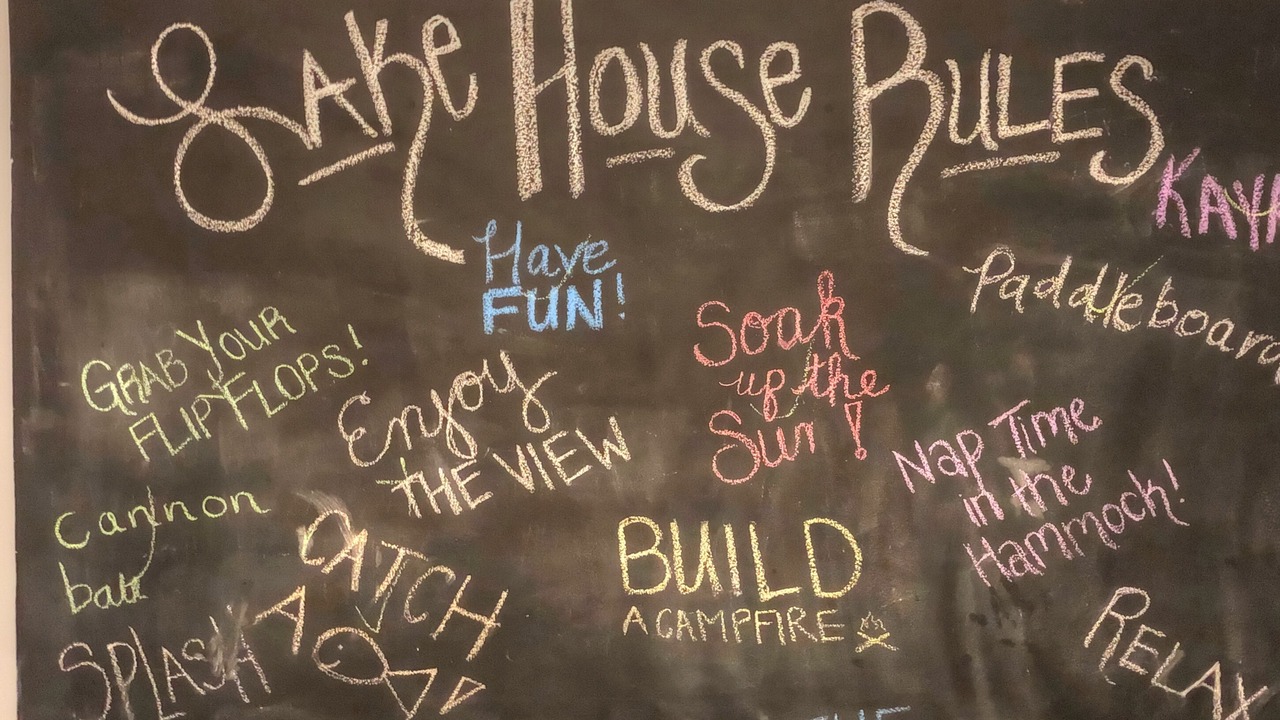 Lake House Rules
KAYA
Have
FUN!
Paddleboard
Soak
up the
Sun!
GRAB YOUR
FLIP FLOPS!
Enjoy
THE VIEW
Nap Time
in the
Hammock!
Cannon
ball
CATCH
A
BUILD
A CAMPFIRE
SPLASH
RELAX
THE